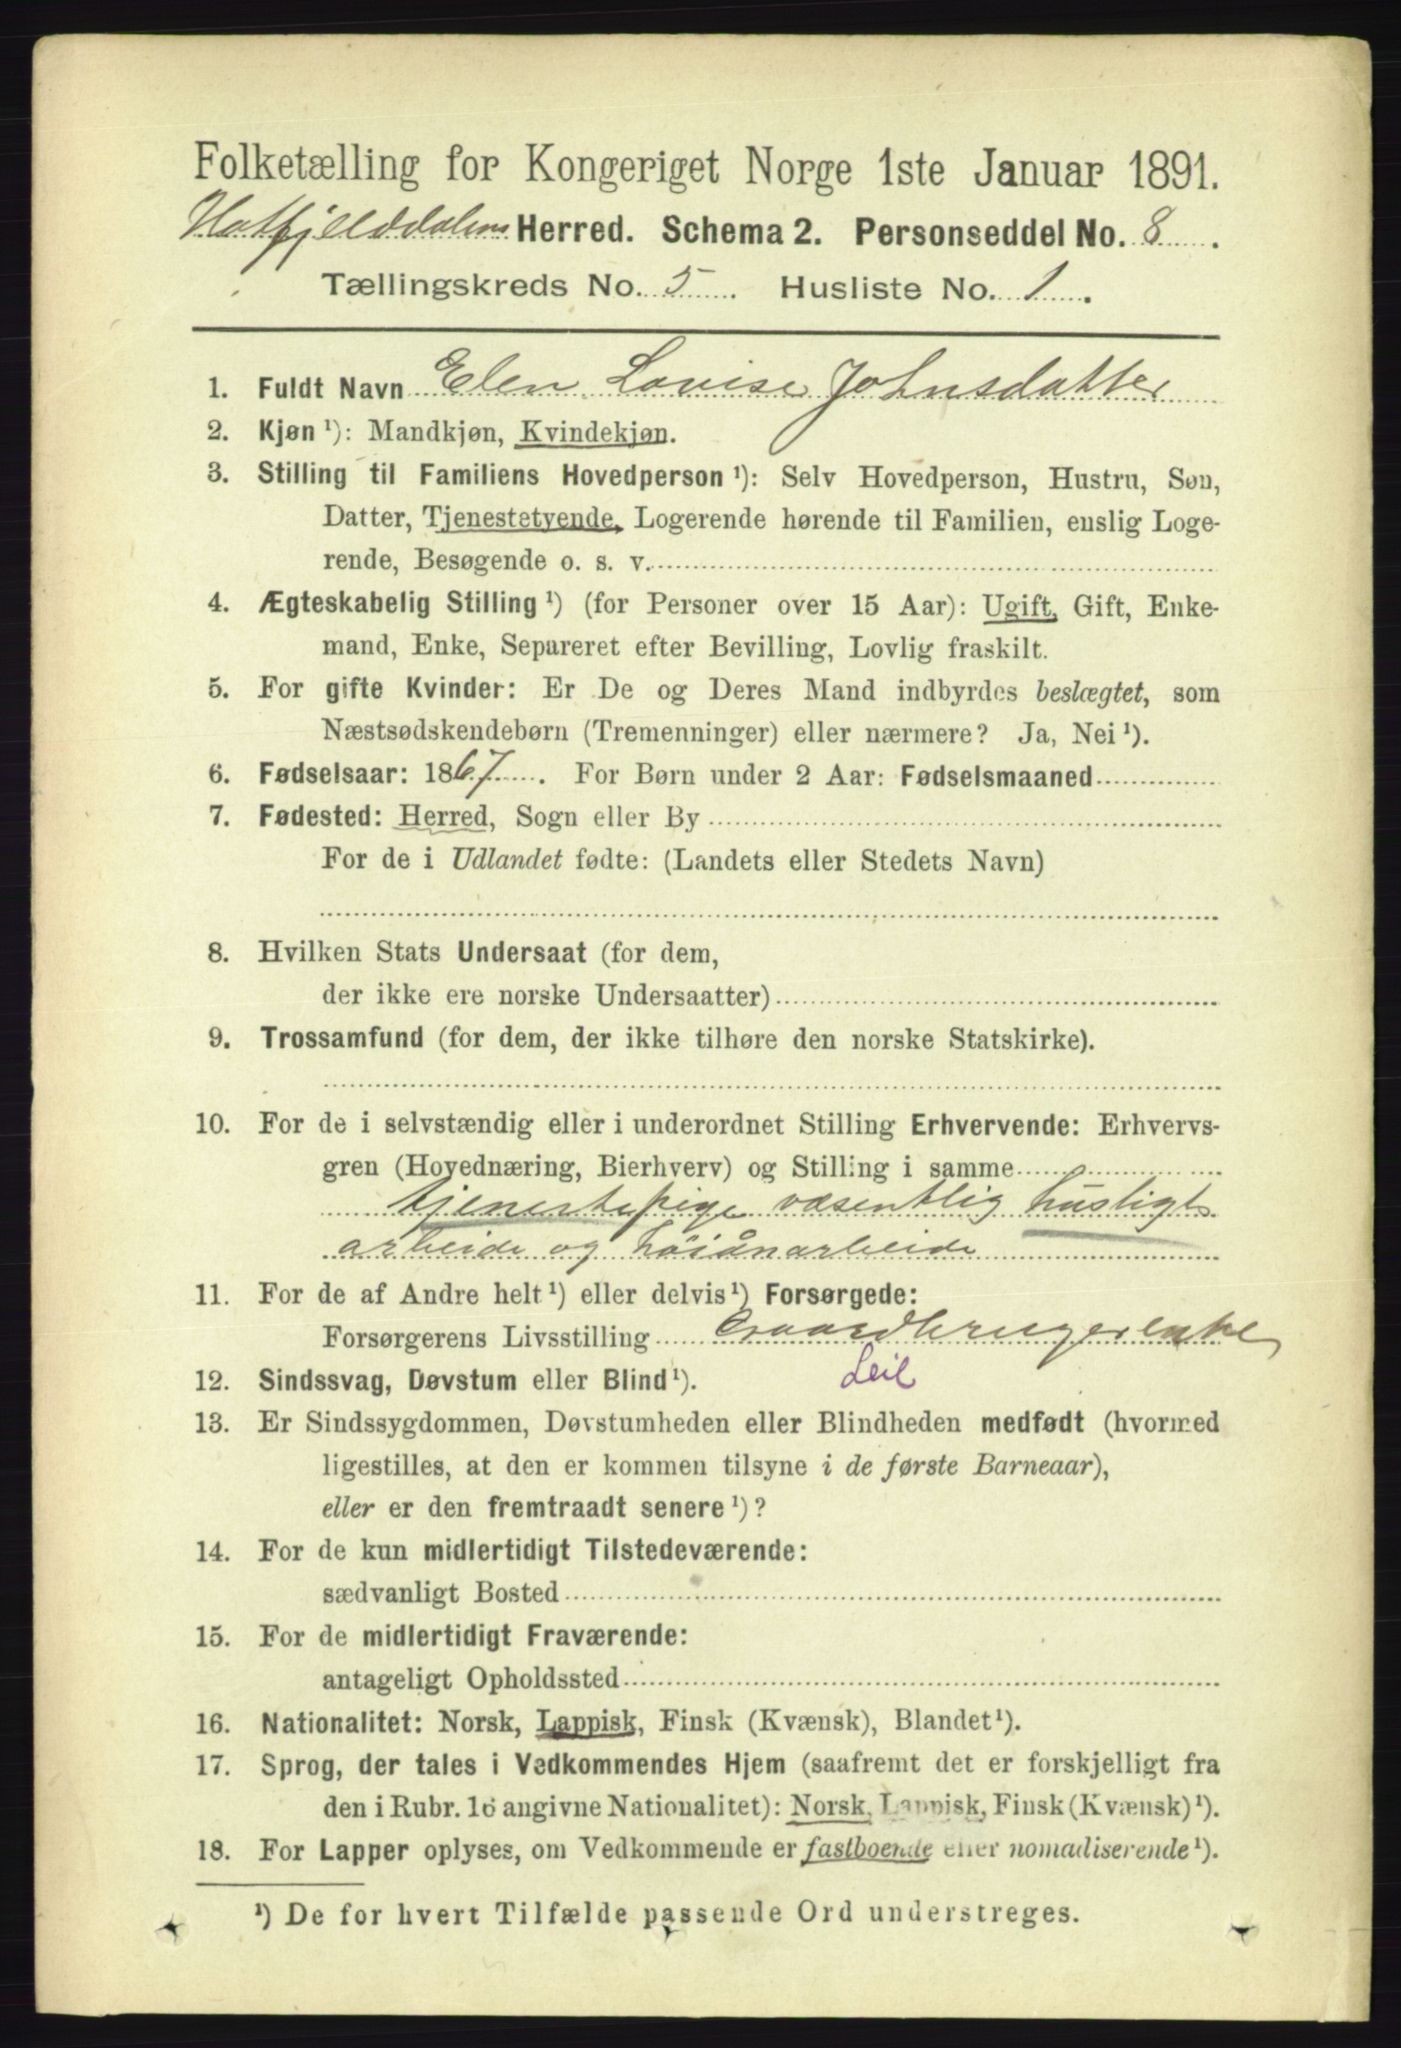 Folketælling for Kongeriget Norge 1ste Januar 1891.
Hatfjelddalens Herred. Schema 2. Personseddel No. 8.
Tællingskreds No. 5. Husliste No. 1.
1. Fuldt Navn Elen Lovise Johnsdatter
2. Kjøn ¹): Mandkjøn, Kvindekjøn.
3. Stilling til Familiens Hovedperson ¹): Selv Hovedperson, Hustru, Søn,
Datter, Tjenestetyende, Logerende hørende til Familien, enslig Loge-
rende, Besøgende o. s. v.
4. Ægteskabelig Stilling ¹) (for Personer over 15 Aar): Ugift, Gift, Enke-
mand, Enke, Separeret efter Bevilling, Lovlig fraskilt.
5. For gifte Kvinder: Er De og Deres Mand indbyrdes beslægtet, som
Næstsødskendebørn (Tremenninger) eller nærmere? Ja, Nei ¹).
6. Fødselsaar: 1867. For Børn under 2 Aar: Fødselsmaaned
7. Fødested: Herred, Sogn eller By
For de i Udlandet fødte: (Landets eller Stedets Navn)
8. Hvilken Stats Undersaat (for dem,
der ikke ere norske Undersaatter)
9. Trossamfund (for dem, der ikke tilhøre den norske Statskirke).
10. For de i selvstændig eller i underordnet Stilling Erhvervende: Erhvervs-
gren (Hovednæring, Bierhverv) og Stilling i samme
tjenestepige væsentlig husligt
arbeide og høiånarbeide
11. For de af Andre helt ¹) eller delvis ¹) Forsørgede:
Forsørgerens Livsstilling Gaardbrugerenke
Leil
12. Sindssvag, Døvstum eller Blind ¹).
13. Er Sindssygdommen, Døvstumheden eller Blindheden medfødt (hvormed
ligestilles, at den er kommen tilsyne i de første Barneaar),
eller er den fremtraadt senere ¹)?
14. For de kun midlertidigt Tilstedeværende:
sædvanligt Bosted
15. For de midlertidigt Fraværende:
antageligt Opholdssted
16. Nationalitet: Norsk, Lappisk, Finsk (Kvænsk), Blandet ¹).
17. Sprog, der tales i Vedkommendes Hjem (saafremt det er forskjelligt fra
den i Rubr. 16 angivne Nationalitet): Norsk, Lappisk, Finsk (Kvænsk) ¹).
18. For Lapper oplyses, om Vedkommende er fastboende eller nomadiserende ¹).
¹) De for hvert Tilfælde passende Ord understreges.